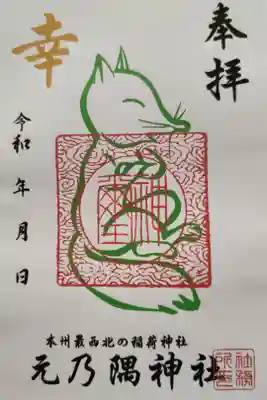 奉拝
幸
令和 年 月 日
本州最西北の稲荷神社
元乃隅神社